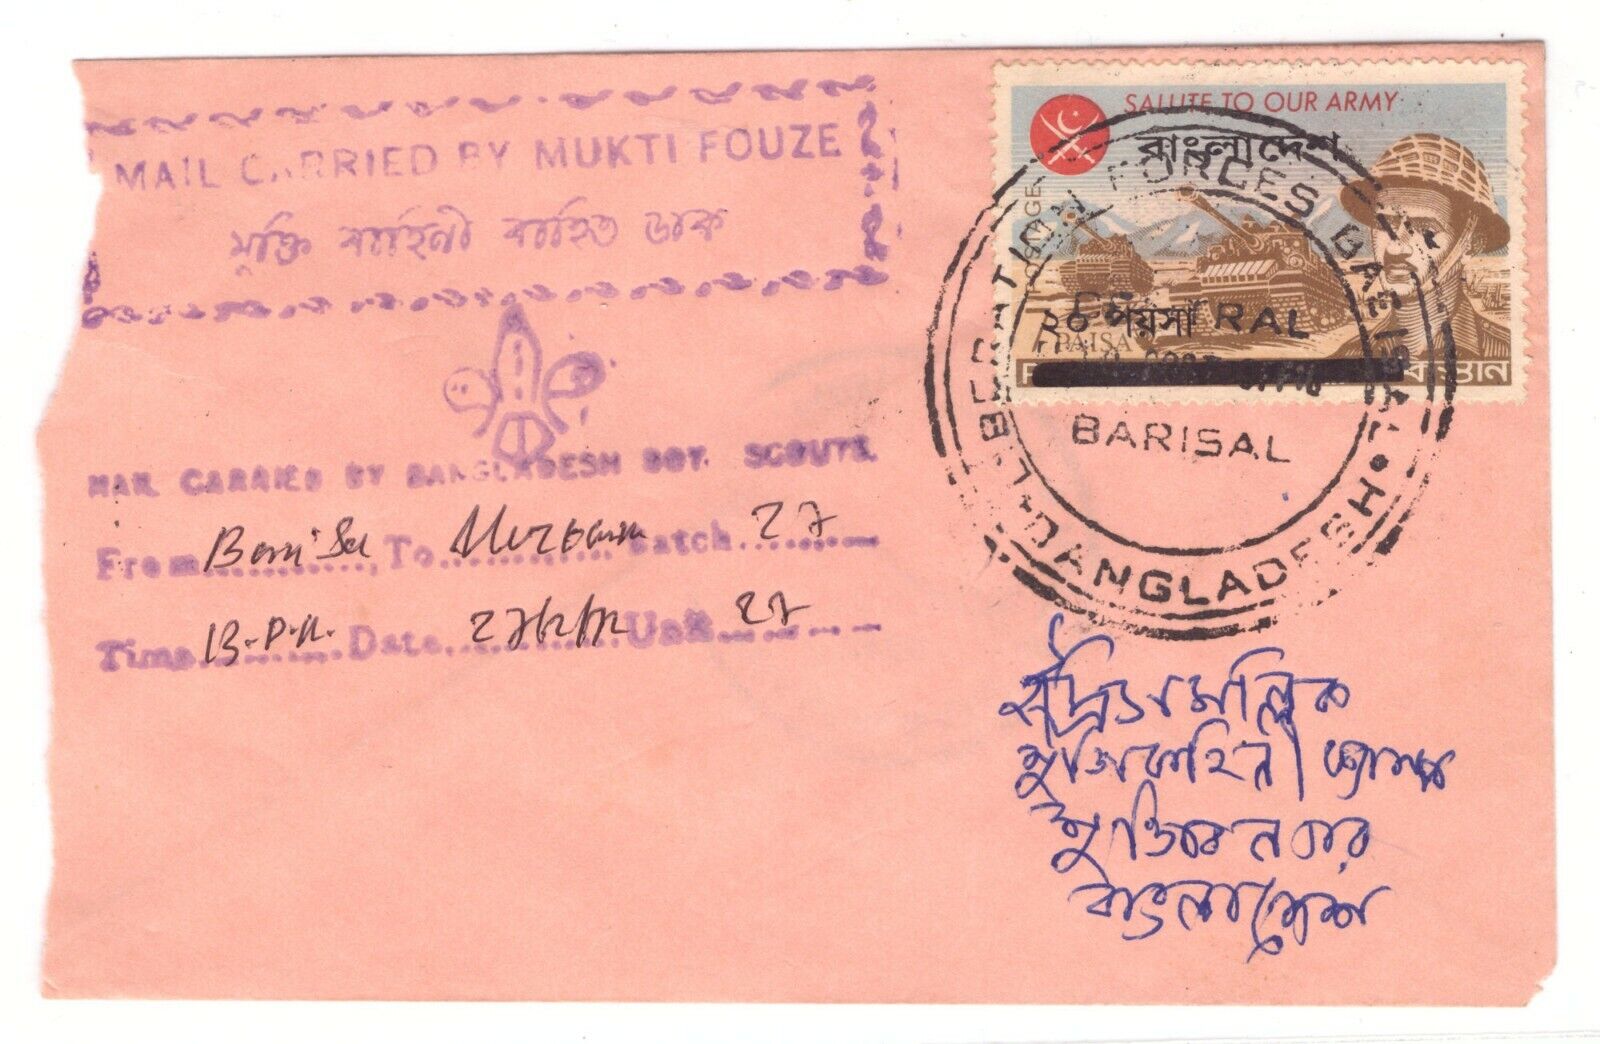 MAIL CARRIED BY MUKTI FOUZE
মুক্তি বাহিনী বাহিত ডাক
MAIL CARRIED BY BANGLADESH BOY. SCOUTS
From To Batch 27
Time 13-P.M. Date Unit 27
SALUTE TO OUR ARMY
বাংলাদেশ
POSTAGE
২০ পয়সা
PAISA
LIBERATION FORCES BARISAL
CENTRAL
BARISAL
BANGLADESH
মল্লিক
মুজিববাহিনী ক্যাম্প
মুজিবনগর
বাংলাদেশ